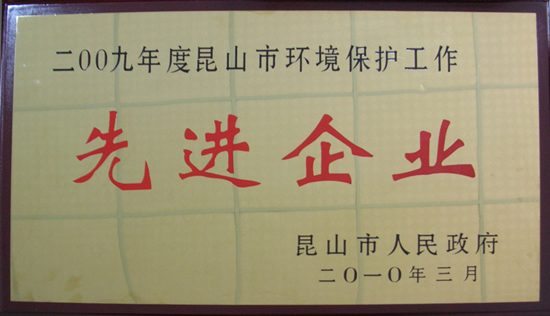 二00九年度昆山市环境保护工作
先进企业
昆山市人民政府
二〇一〇年三月